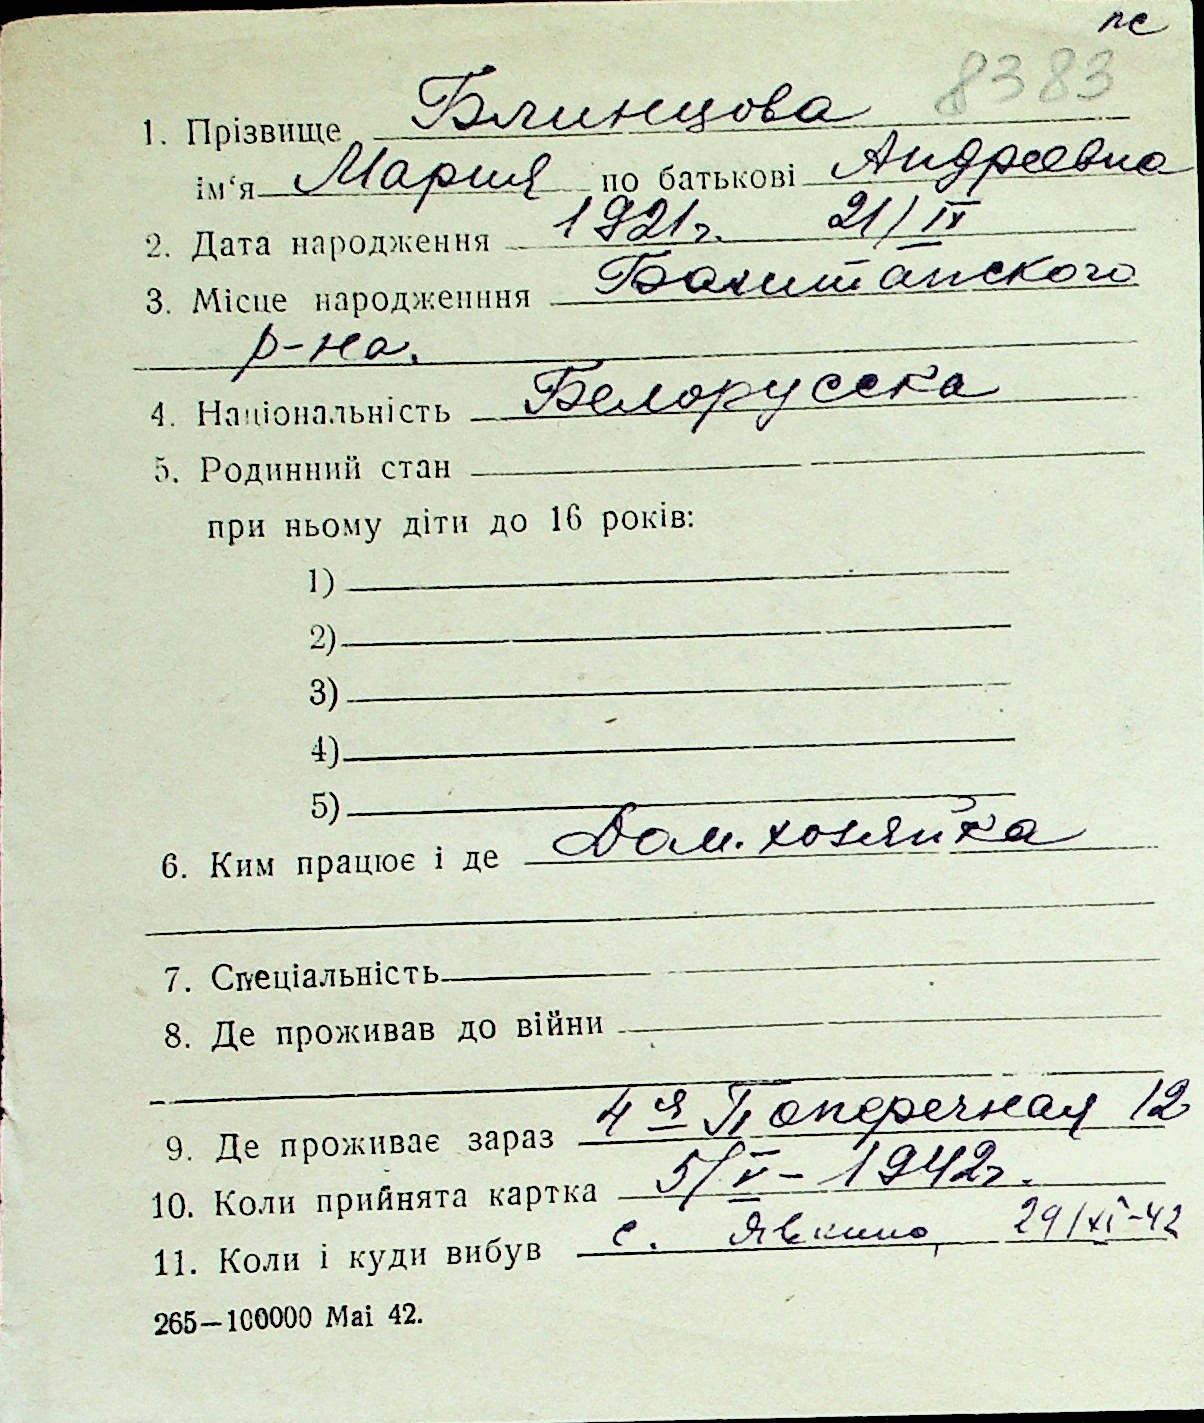 пс
8383
1. Прізвище Блинцова
ім‘я Мария по батькові Андреевна
2. Дата народження 1921г. 21/IV
3. Місце народженння Баштанского
р-на.
4. Національність Белорусска
5. Родинний стан
при ньому діти до 16 років:
1)
2)
3)
4)
5)
6. Ким працює і де Дом. хозяйка
7. Спеціальність
8. Де проживав до війни
9. Де проживає зараз 4ая Поперечная 12
10. Коли прийнята картка 5/V-1942г.
11. Коли і куди вибув с. Явкино, 29/XI-42
265—100000 Mai 42.